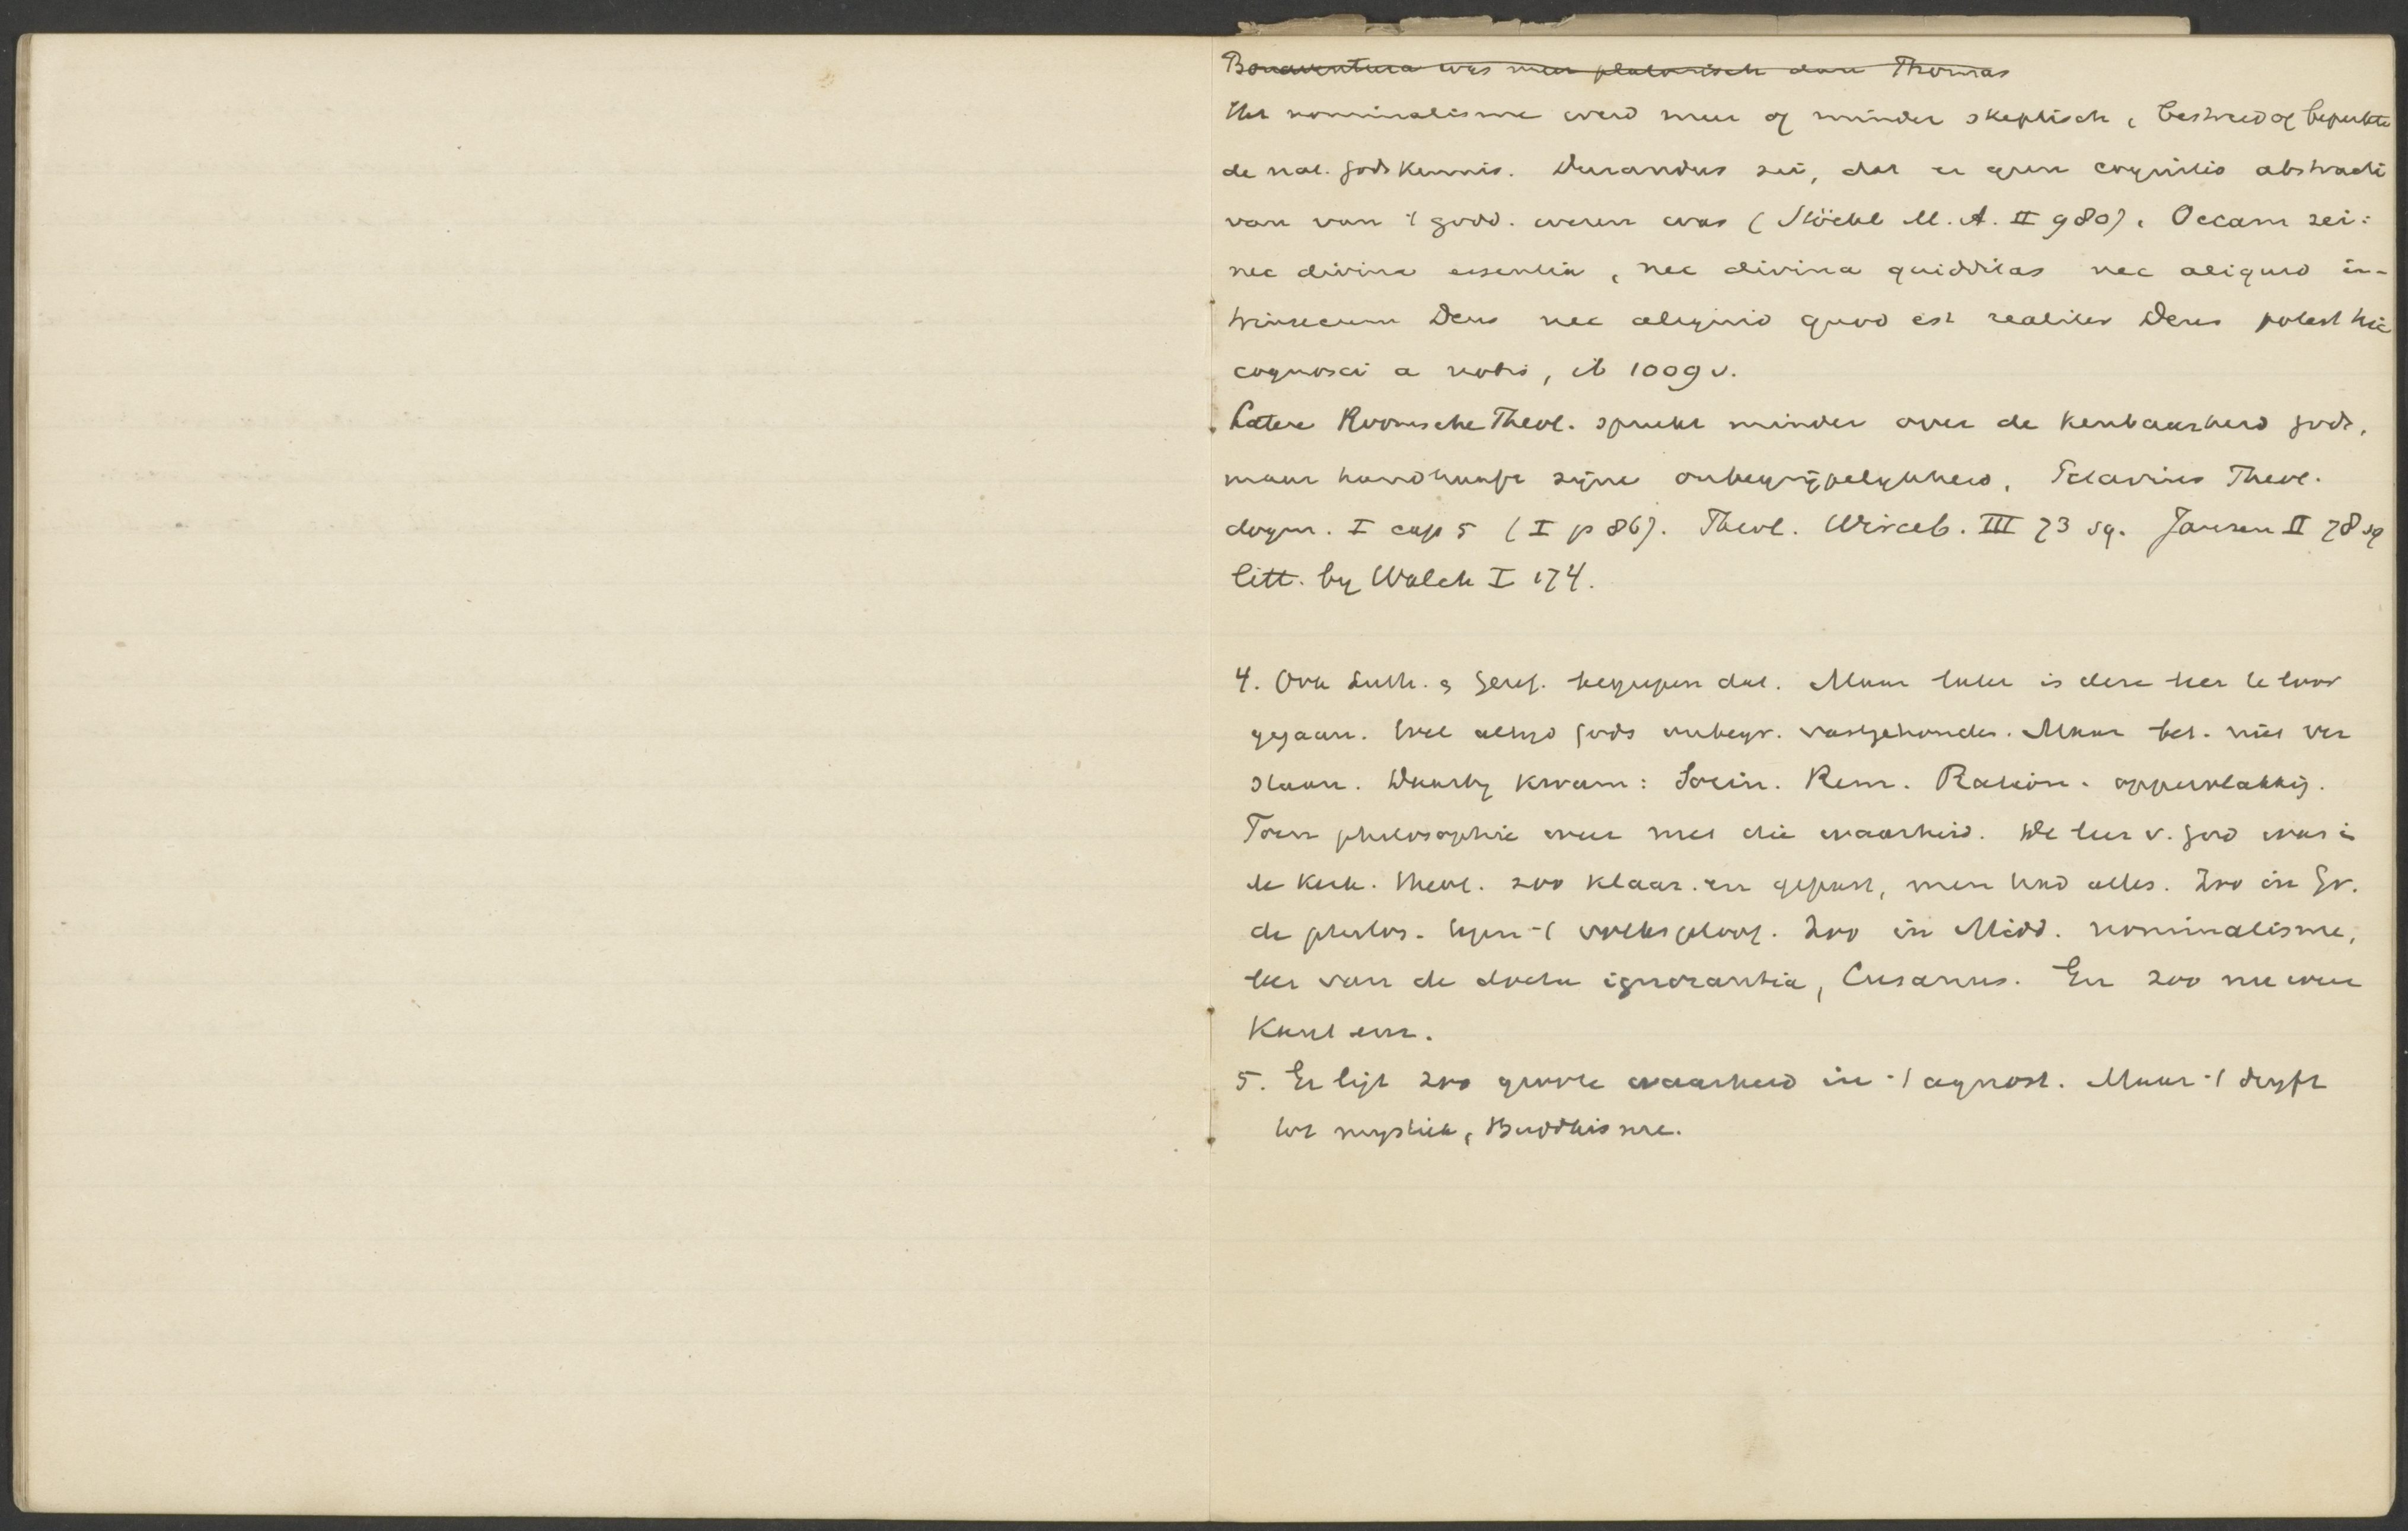 Bonaventura was meer platonisch dan Thomas
Het nominalisme werd meer of minder skeptisch, bestreed of beperkte
de nat. godskennis. Durandus zei, dat er geen cognitio abstracti
van van 't godd. wezen was (Stöckl M. A. II 980). Occam zei:
nec divina essentia, nec divina quidditas nec aliquid in-
trinsecum Deus nec aliquid quod est realiter Deus potest hic
cognosci a nobis, ib 1009 v.
Latere Roomsche Theol. spreekt minder over de kenbaarheid Gods,
maar handhaaft zijne onbegrijpelykheid, Petavius Theol.
dogm. I cap 5 (I p 86). Theol. Wirceb. III 73 sq. Jansen II 78 sq
litt. by Walch I 174.
4. Ook Luth. & Geref. begrepen dat. Maar later is deze leer te loor
gegaan. Wel altyd Gods onbegr. vastgehouden. Maar bet. niet ver
staan. Daarby kwam: Socin. Rem. Ration. oppervlakkig.
Toen philosophie weer met die waarheid. De leer v. God was in
de Kerk. theol. zoo klaar en gepast, men had alles. Zoo in Gr.
de philos. tegen 't volksgeloof. Zoo in Midd. nominalisme,
leer van de docta ignorantia, Cusanus. En zoo nu weer
Kant enz.
5. Er ligt zoo groote waarheid in 't agnost. Maar 't dryft
tot mystiek, Buddhisme.